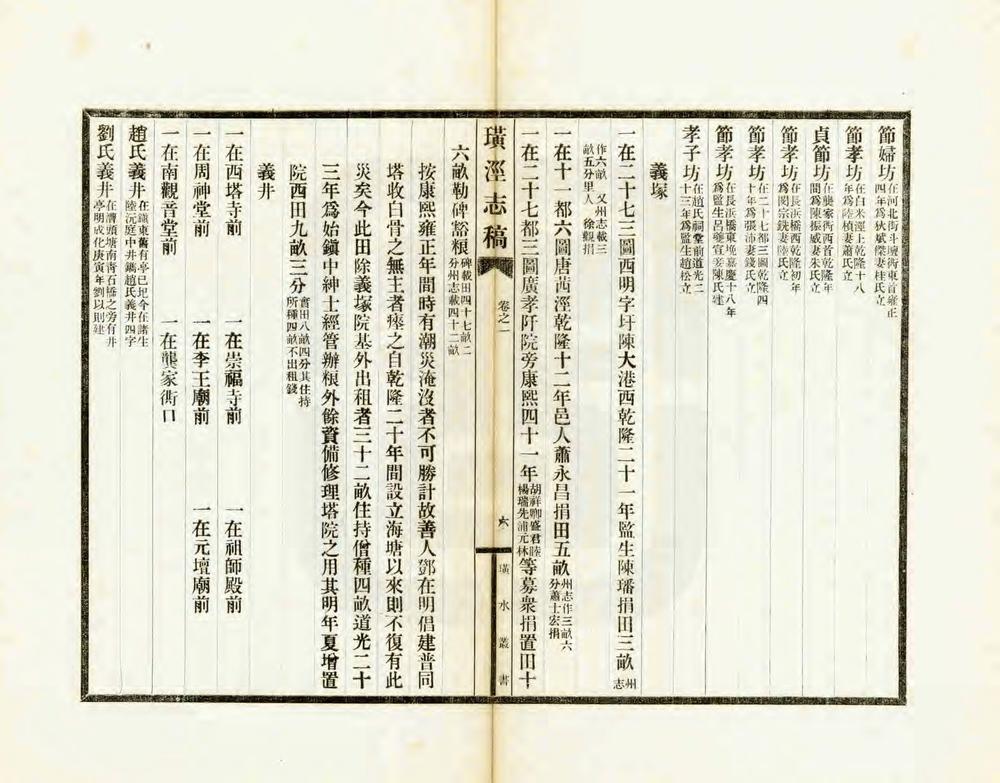 節婦坊在河北街斗壇衖東首雍正四年爲狄斌傑妻桂氏立
節孝坊在白米涇上乾隆十八年爲陸楨妻蕭氏立
貞節坊在龔家衖西首乾隆年間爲陳振威妻朱氏立
節孝坊在長浜橋西乾隆初年爲閔宗銑妻陸氏立
節孝坊在二十七都三圖乾隆四十年爲張沛妻錢氏立
節孝坊在長浜橋東堍嘉慶十八年爲監生呂夔宣妾陳氏建
孝子坊在趙氏祠堂前道光二十三年爲監生趙松立
義塚
一在二十七三圖西明字圩陳大港西乾隆二十一年監生陳璠捐田三畝州志
作六畝 又州志載三畝五分里人 徐觀捐
一在十一都六圖唐茜涇乾隆十二年邑人蕭永昌捐田五畝州志作三畝六分蕭士宏捐
一在二十七都三圖廣孝阡院旁康熙四十一年胡祥卿盛君陸楊瑞先浦元林等募衆捐置田十
璜涇志稿 卷之一 六 璜水叢書
六畝勒碑豁粮碑載田四十七畝二分州志載四十二畝
按康熙雍正年間時有潮災淹沒者不可勝計故善人鄧在明倡建普同
塔收白骨之無主者瘞之自乾隆二十年間設立海塘以來則不復有此
災矣今此田除義塚院基外出租者三十二畝住持僧種四畝道光二十
三年爲始鎭中紳士經管辦粮外餘資備修理塔院之用其明年夏增置
院西田九畝三分實田八畝四分其住持所種四畝不出租錢
義井
一在西塔寺前 一在崇福寺前 一在祖師殿前
一在周神堂前 一在李王廟前 一在元壇廟前
一在南觀音堂前 一在龔家衖口
趙氏義井在鎭東舊有亭已圯今在諸生陸沅庭中井鐫趙氏義井四字
劉氏義井在漕頭塘南靑石橋之旁有井亭明成化庚寅年劉以則建